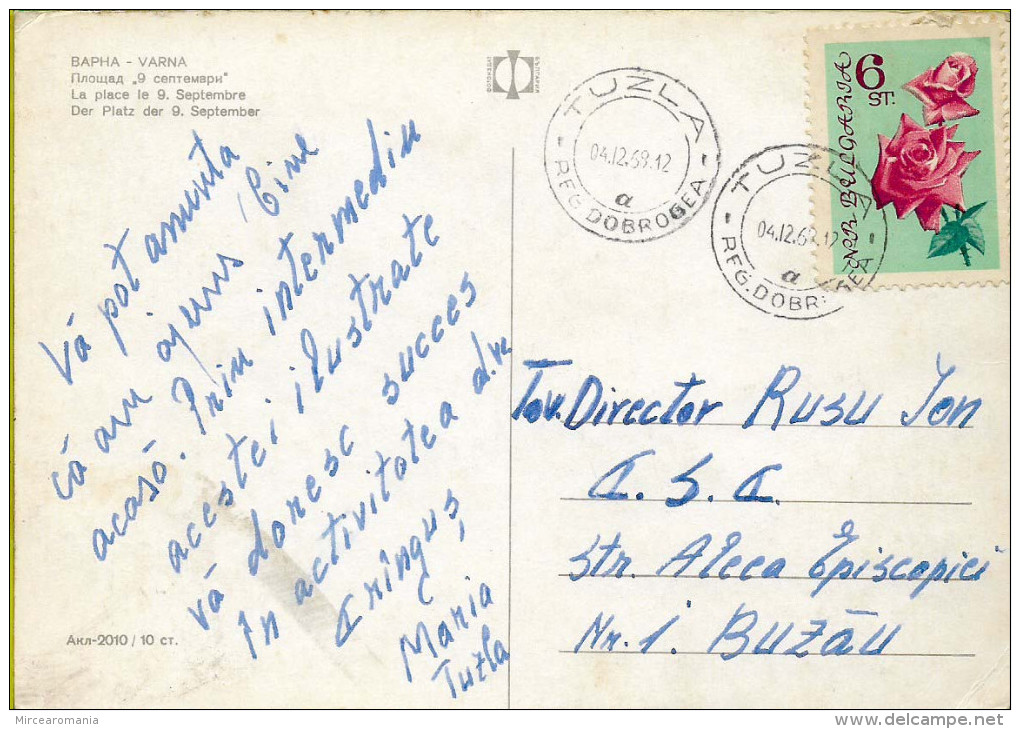 ВАРНА - VARNA
Площад „9 септември"
La place le 9. Septembre
Der Platz der 9. September
БЪЛГАРИЯ
TUZLA
04.12.69.12
a
REG. DOBROGEA
TUZLA
04.12.69.12
a
REG. DOBROGEA
6
ST.
N.R.B. BULGARIA
Vă pot anunta
că am ajuns bine
acasă. Prin intermediu
acestei ilustrate
vă doresc succes
în activitatea d.vs
Cringus,
Maria
Tuzla
Tov. Director Rusu Ion
C. S. C.
Str. Aleea Episcopiei
Nr. 1. Buzău
Акл-2010 / 10 ст.
Mircearomania
http://www.delcampe.net